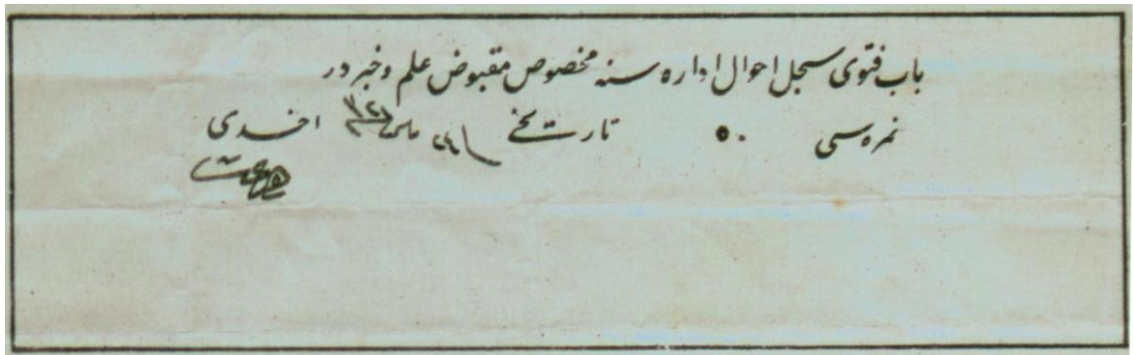 باب فتوى سجل احوال اداره سنه مخصوص مقبوض علم و خبر در
نمره سى ٥٠ تاريخ مايس ٣٢٦ اخذى